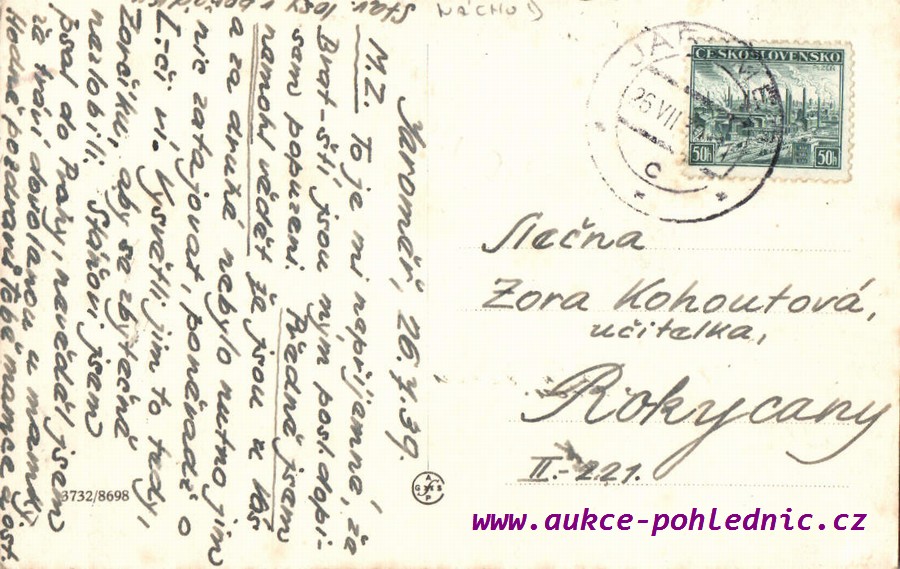 NÁCHOD
JAR
26.VII
C
ČESKO-SLOVENSKO
50h 50h
Slečna
Zora Kohoutová,
učitelka,
Rokycany
II.-221.
Jaroměř, 26.7.39.
M.Z. To je mi nepříjemné, že
Brat-ští jsou mým posl. dopi-
sem popuzeni. Předně jsem
namohl vědět že jsou u Vás
a za druhé nebylo nutno jim
nic zatajovat, poněvadž o
L-ci ví. Vysvětli jim to tedy,
Zoričku, aby se zbytečně
nezlobili. Stáňovi jsem
psal do Prahy, nevěděl jsem
že tráví dovolenou u mamky.
Hodně pozdravů Tobě, mamce a ost.
Stav.
3732/8698
GMS
www.aukce-pohlednic.cz